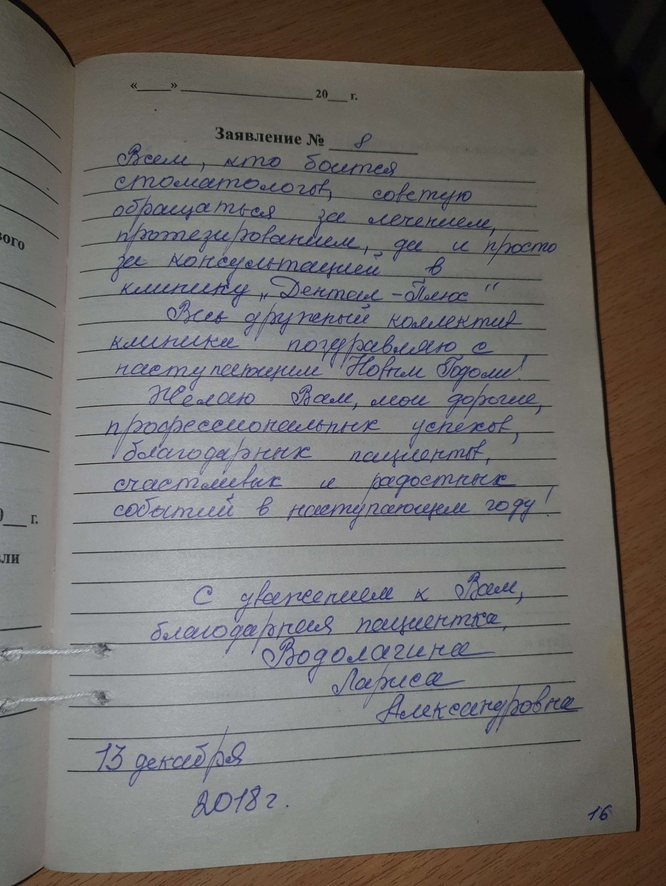 «____» ____________________ 20___ г.
Заявление № 8
Всем, кто боится
стоматологов, советую
обращаться за лечением,
протезированием, да и просто
за консультацией в
клинику „Дентал-Плюс"
Весь дружный коллектив
клиники поздравляю с
наступающим Новым Годом!
Желаю Вам, мои дорогие,
профессиональных успехов,
благодарных пациентов,
счастливых и радостных
событий в наступающем году!
С уважением к Вам,
благодарная пациентка,
Водолагина
Лариса
Александровна
13 декабря
2018г.
16
вого
0__ г.
ли